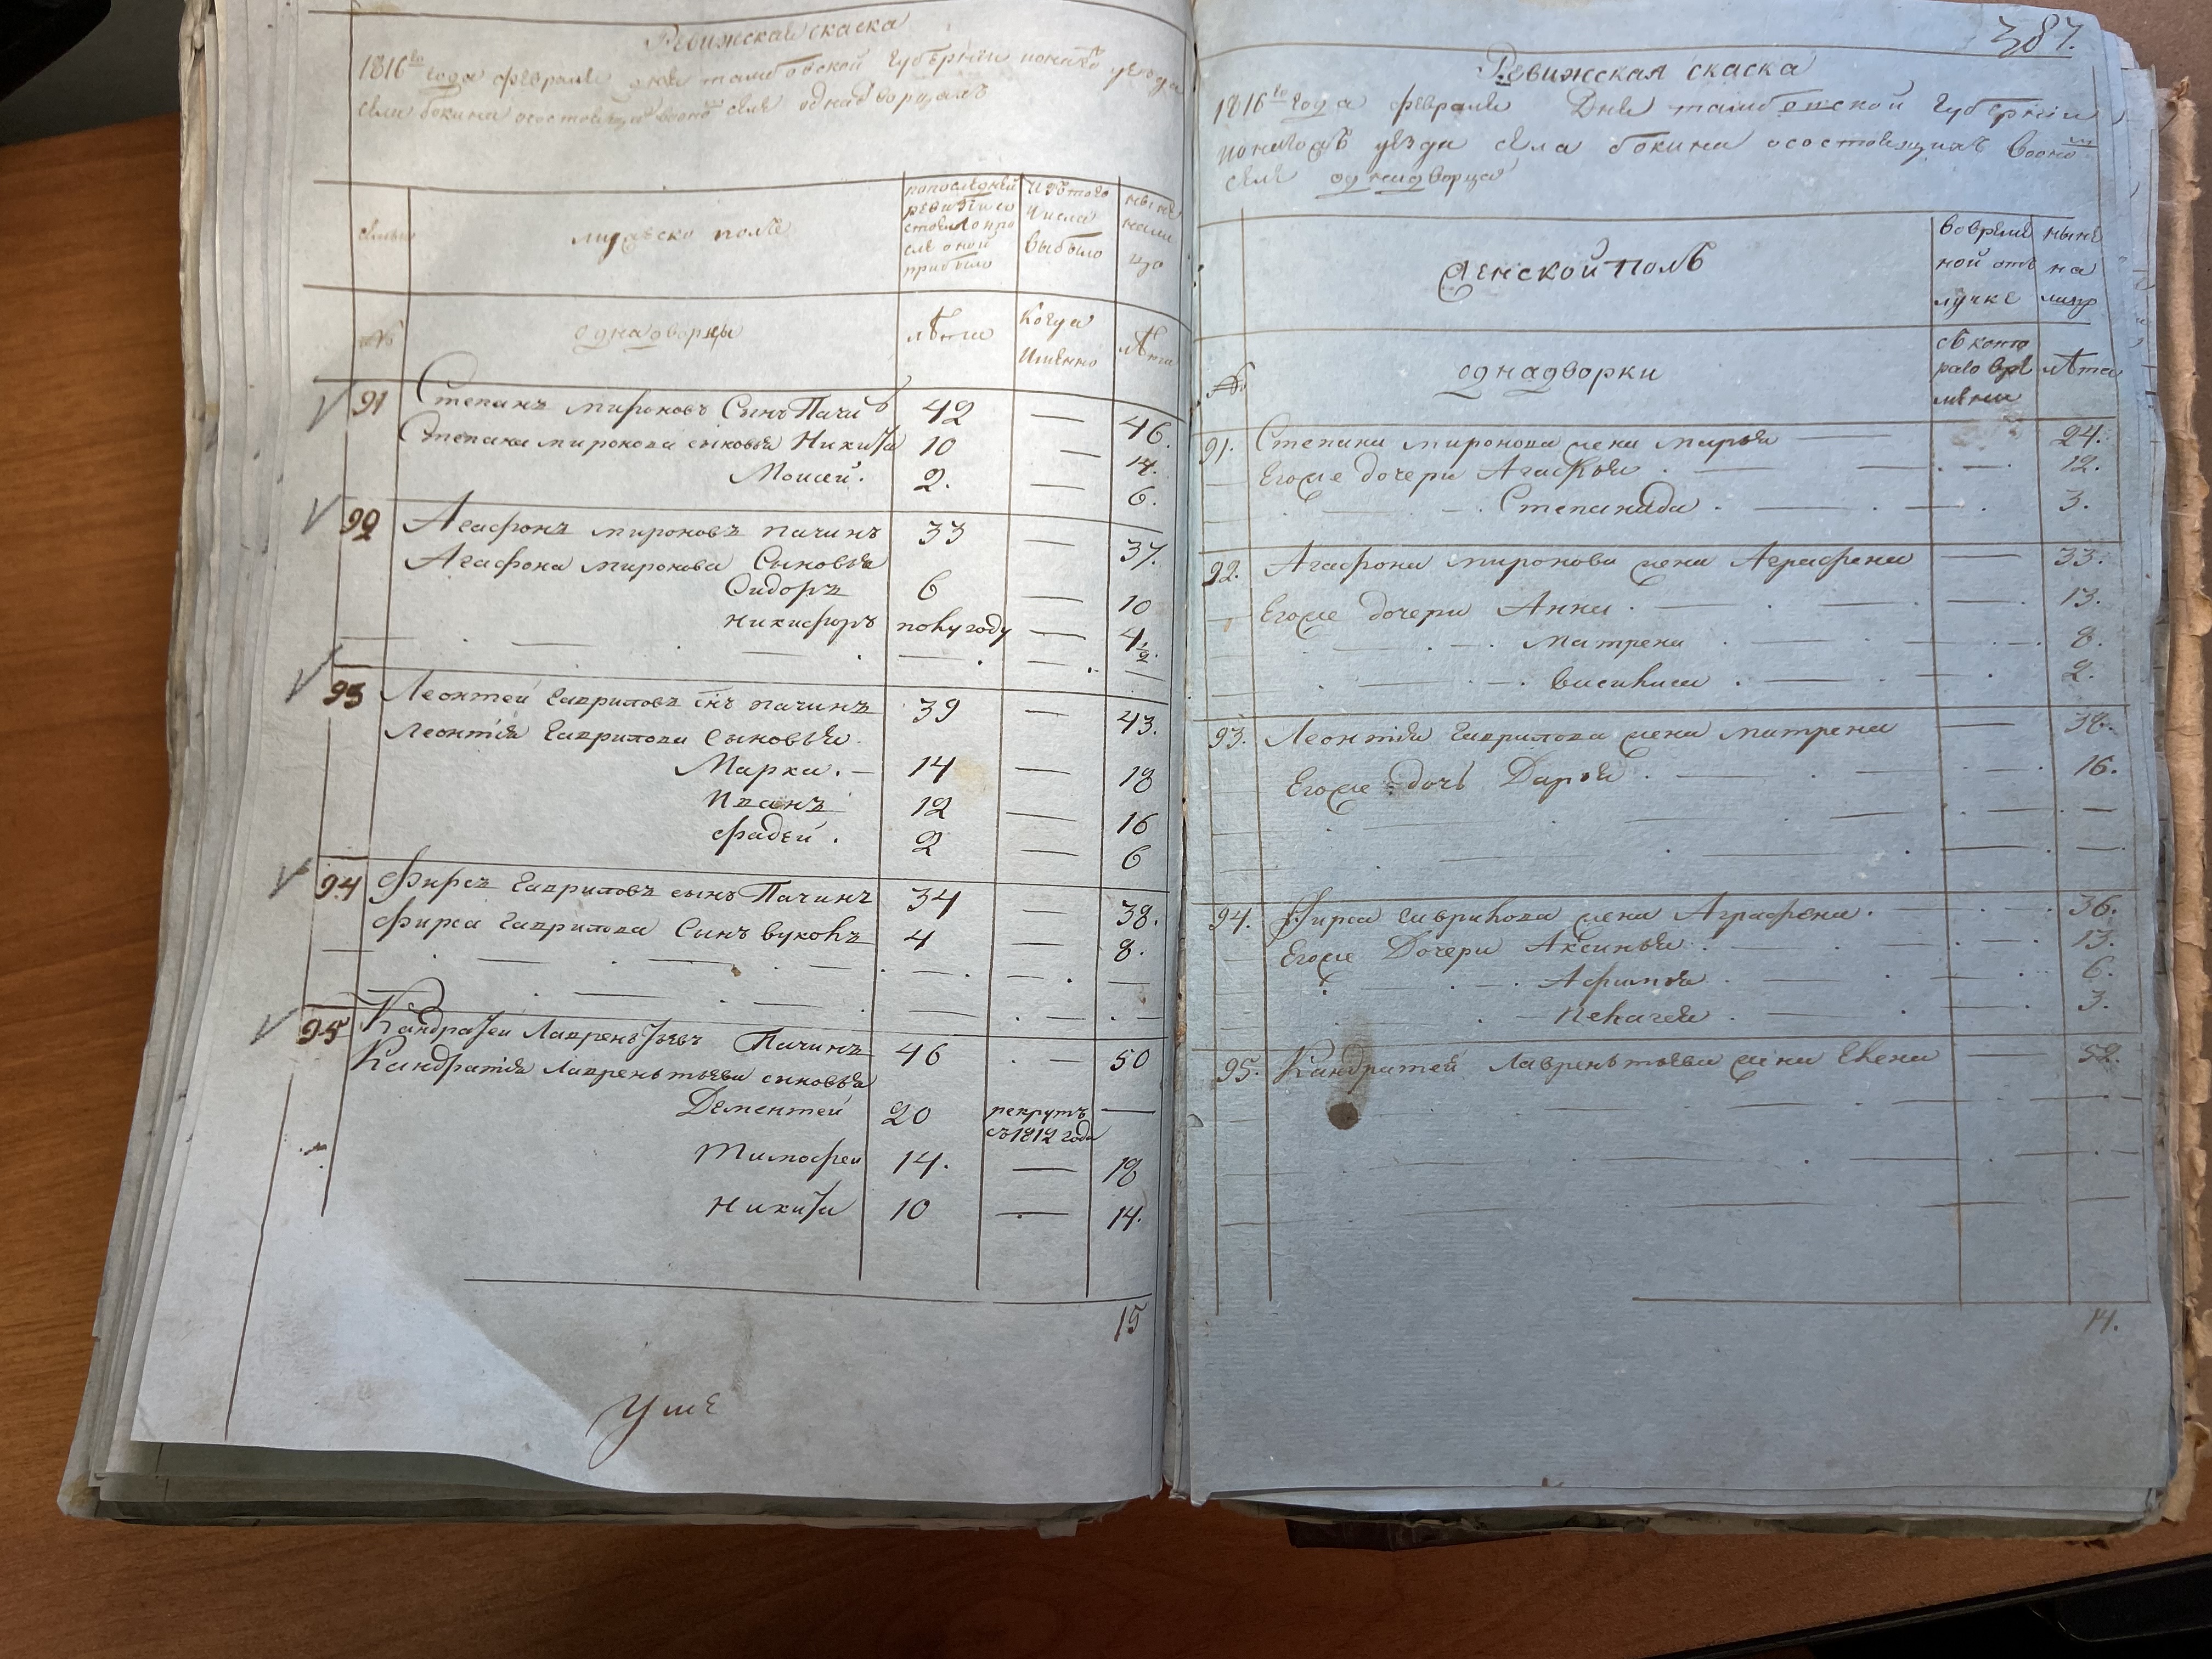 Ревижская скаска
1816го года февраля дня тамбовской губернии
села бокина осостоящихъ воономъ селе однадворцахъ
семьи
мужеско полъ
попоследней ревизии состояло и после оной прибыло
изътого числа выбыло
ныне налицо
№
однадворцы
лѣта
когда имянно
лѣта
91 Степанъ мироновъ Сынъ Пачинъ 42 — 46.
Степана миронова сыновья Никита 10 — 14.
Моисей. 2. — 6.
92 Агафонъ мироновъ пачинъ 33 — 37.
Агафона миронова Сыновья
Сидоръ 6 — 10
никифоръ полугоду — 4 1/2.
93 Леонтей гавриловъ сiнъ пачинъ 39 — 43.
Леонтiя гаврилова сыновья
Марка. — 14 — 18
иванъ 12 — 16
фадей. 2 — 6
94 Фирсъ гавриловъ сынъ Пачинъ 34 — 38.
фирса гаврилова Сынъ вуколъ 4 — 8.
95 Кандратей Лаврентьевъ Пачинъ 46 — 50
Кандратiя лаврентьева сыновья
Дементей 20 рекрутъ съ1812 года —
тимофей 14. — 18
никита 10 — 14.
15
387.
Ревижская скаска
1816го года февраля Дня тамбовской губернии
уезда села бокина осостоящихъ воономъ
селе однадворца
Женской полъ
вовременной отлучке
ныне налицо
№
однадворки
съ которого времени
лѣта
91. Степана миронова жена марья — 24.
Егоже дочери Агафья — 12.
Степанида — 3.
92. Агафона миронова жена Аграфена — 33.
Егоже дочери Анна — 13.
матрена — 8.
василиса — 2.
93. Леонтiя гаврилова жена матрена — 38.
Егоже дочь Дарья — 16.
94. Фирса гаврилова жена Аграфена — 36.
Егоже Дочери Аксинья — 13.
Афимья — 6.
пелагея — 3.
95. Кандратей лаврентьева жена Елена — 52.
14.